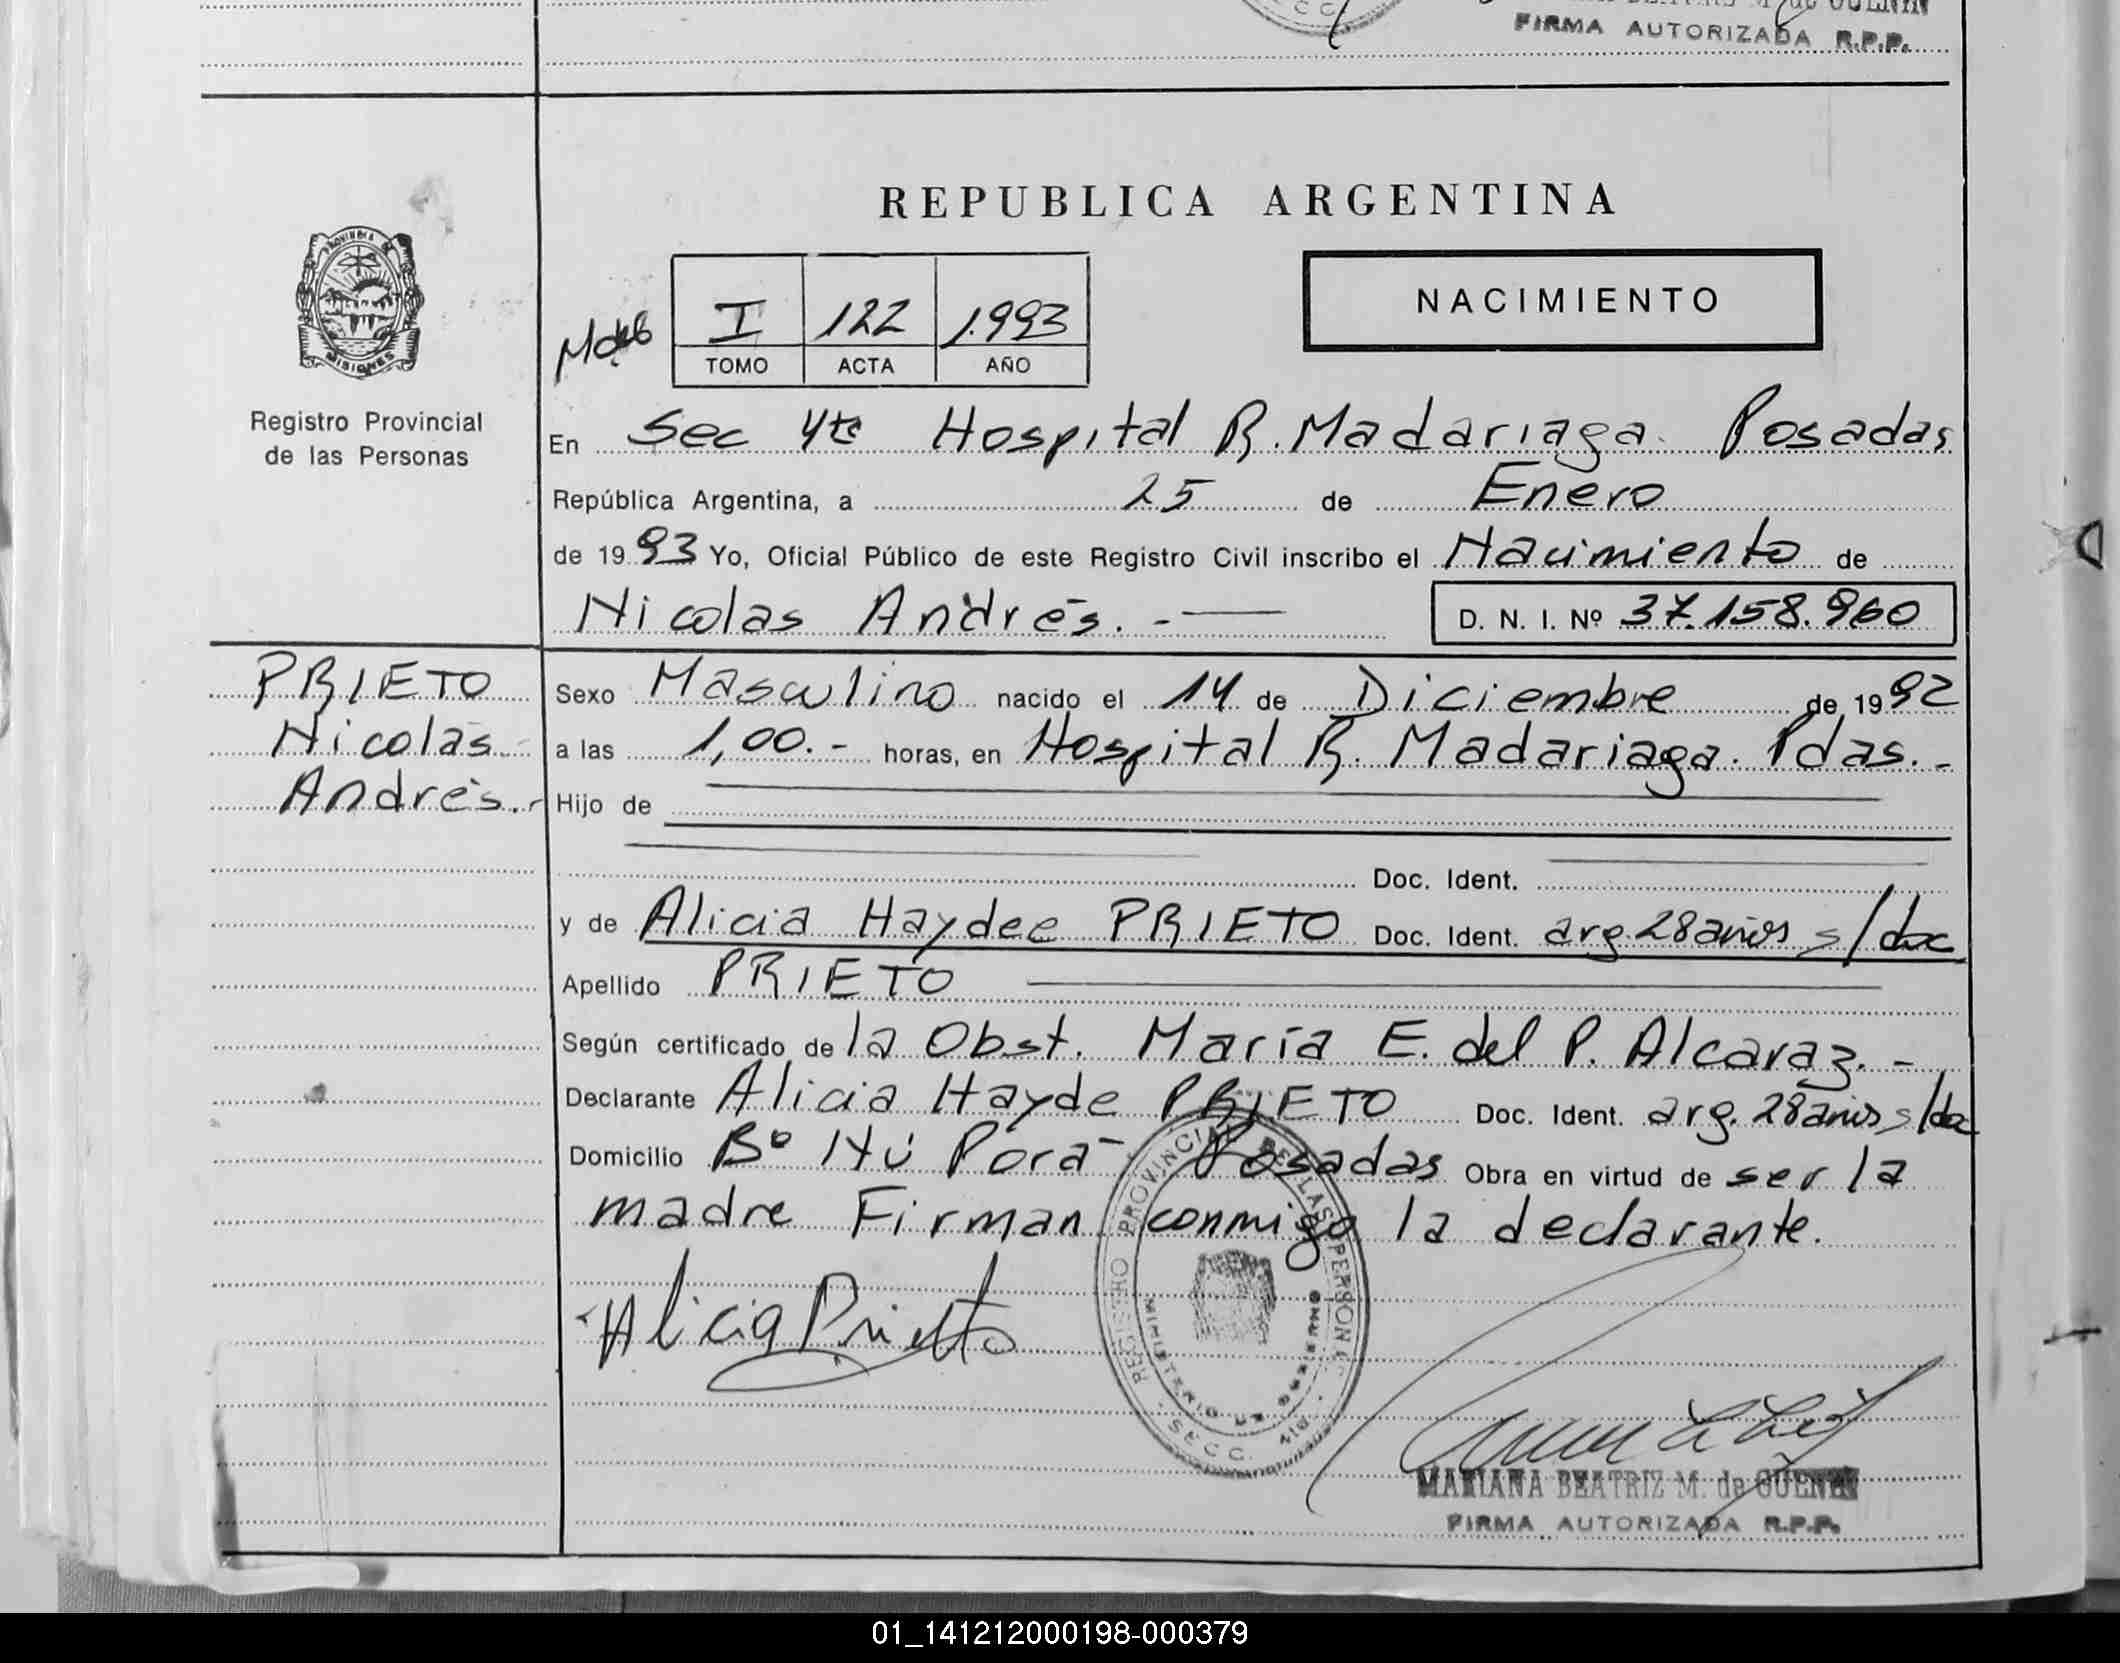 FIRMA AUTORIZADA R.P.P.
REPUBLICA ARGENTINA
NACIMIENTO
I 122 1.993
TOMO ACTA AÑO
PROVINCIA DE
MISIONES
Registro Provincial
de las Personas
En Sec 4ta Hospital R. Madariaga. Posadas
República Argentina, a 25 de Enero
de 1993 Yo, Oficial Público de este Registro Civil inscribo el Nacimiento de
Nicolas Andrés. -
D. N. I. Nº 37.158.960
PRIETO
Nicolás
Andrés.-
Sexo Masculino nacido el 14 de Diciembre de 1992
a las 1,00.- horas, en Hospital R. Madariaga. Pdas.-
Hijo de
Doc. Ident.
y de Alicia Haydee PRIETO Doc. Ident. arg. 28 años s/doc
Apellido PRIETO
Según certificado de la Obst. María E. del P. Alcaraz.-
Declarante Alicia Hayde PRIETO Doc. Ident. arg. 28 años s/doc
Domicilio Bº Ñú Porá - Posadas Obra en virtud de ser la
madre Firman conmigo la declarante.
Alicia Prietto
REGISTRO PROVINCIAL DE LAS PERSONAS
MINISTERIO DE GOBIERNO
SECC. 4ta
MARIANA BEATRIZ M. de GUENIN
FIRMA AUTORIZADA R.P.P.
01_141212000198-000379